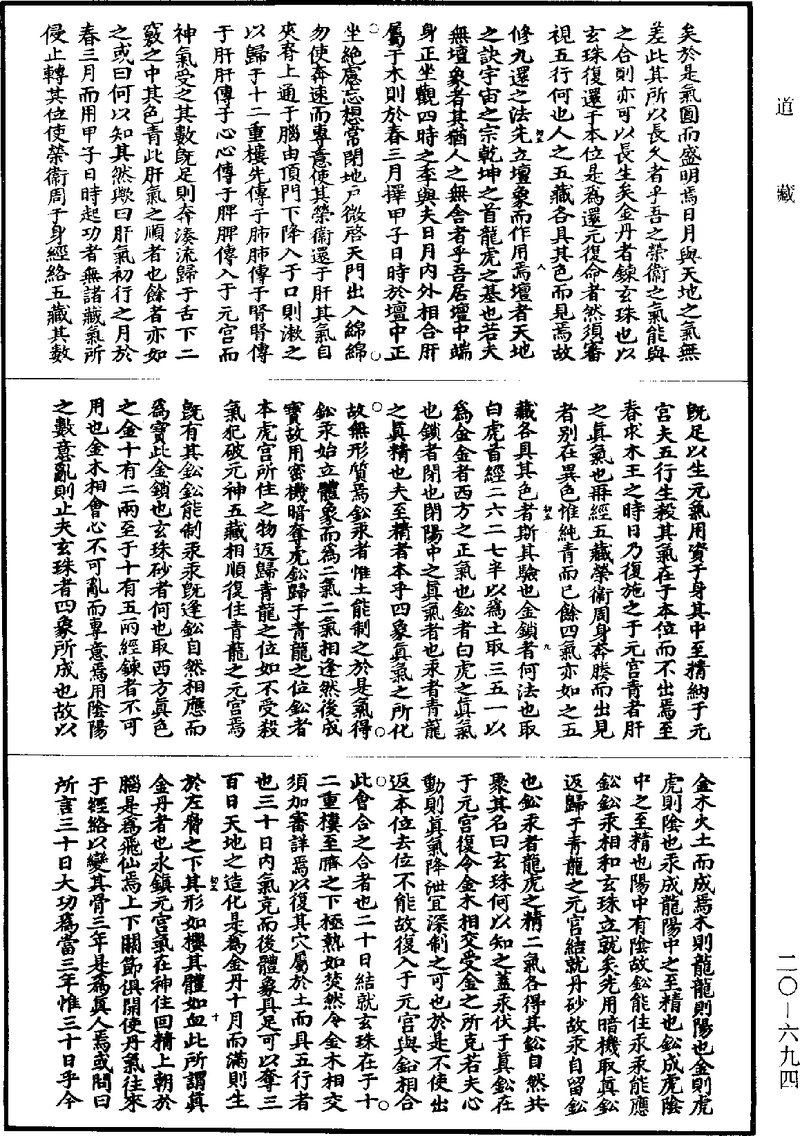 道藏
矣於是氣圓而盛明焉日月與天地之氣無
差此其所以長久者乎吾之榮衞之氣能與
之合則亦可以長生矣金丹者鍊玄珠也以
玄珠復還于本位是爲還元復命者然須審
視五行何也人之五藏各具其色而見焉故
修九還之法先立壇象而作用焉壇者天地
之訣宇宙之宗乾坤之首龍虎之基也若夫
無壇象者其猶人之無舍者乎吾居壇中端
身正坐觀四時之季與夫日月內外相合肝
屬于木則於春三月擇甲子日時於壇中正
坐絕慮忘想常閉地戶微啓天門出入綿綿
勿使奔速而專意使其榮衞還于肝其氣自
夾脊上通于腦由頂門下降入于口則漱之
以歸于十二重樓先傳于肺肺傳于腎腎傳
于肝肝傳于心心傳于脾脾傳入于元宮而
神氣受之其數旣足則奔湊流歸于舌下二
竅之中其色青此肝氣之順者也餘者亦如
之或曰何以知其然歟曰肝氣初行之月於
春三月而用甲子日時起功者無諸藏氣所
侵止轉其位使榮衞周于身經絡五藏其數
旣足以生元氣用資于身其中至精納于元
宮夫五行生殺其氣在于本位而不出焉至
春求木王之時日乃復施之于元宮青者肝
之眞氣也再經五藏榮衞周身奔騰而出見
者別在異色惟純青而已餘四氣亦如之五
藏各具其色者斯其驗也金鎖者何法也取
白虎首經二六二七半以爲土取三五一以
爲金金者西方之正氣也鈆者白虎之眞氣
也鎖者閉也閉陽中之眞氣者也汞者青龍
之眞精也夫至精者本乎四象眞氣之所化
故無形質焉鈆汞者惟土能制之於是氣得
鈆汞始立體象而爲二氣二氣相逢然後成
寶故用密機暗奪虎鈆歸于青龍之位鈆者
本虎宮所住之物返歸青龍之位如不受殺
氣犯破元神五藏相順復住青龍之元宮焉
旣有其鈆鈆能制汞汞旣逢鈆自然相應而
爲寶此金鎖也玄珠砂者何也取西方眞色
之金十有二兩至于十有五兩經鍊者不可
用也金木相會心不可亂而專意焉用陰陽
之數意亂則止夫玄珠者四象所成也故以
金木火土而成焉木則龍龍則陽也金則虎
虎則陰也汞成龍陽中之至精也鈆成虎陰
中之至精也陽中有陰故鈆能住汞汞能應
鈆鈆汞相和玄珠立就矣先用暗機取眞鈆
返歸于青龍之元宮結就丹砂故汞自留鈆
也鈆汞者龍虎之精二氣各得其鈆自然共
聚其名曰玄珠何以知之蓋汞伏于眞鈆在
于元宮復令金木相交受金之所克若夫心
動則眞氣降泄宜深制之可也於是不使出
返本位去位不能故復入于元宮與鉛相合
此會合之合者也二十日結就玄珠在于十
二重樓至臍之下極熱如熒然令金木相交
須加審詳焉以復其穴屬於土而具五行者
也三十日內氣克而後體象具足可以奪三
百日天地之造化是爲金丹十月而滿則生
於左脅之下其形如櫻其體如血此所謂眞
金丹者也永鎮元宮氣在神住回精上朝於
腦是爲飛仙焉上下關節俱開使丹氣往來
于經絡以變其骨三年是爲眞人焉或問曰
所言三十日大功爲當三年惟三十日乎今
二〇—六九四